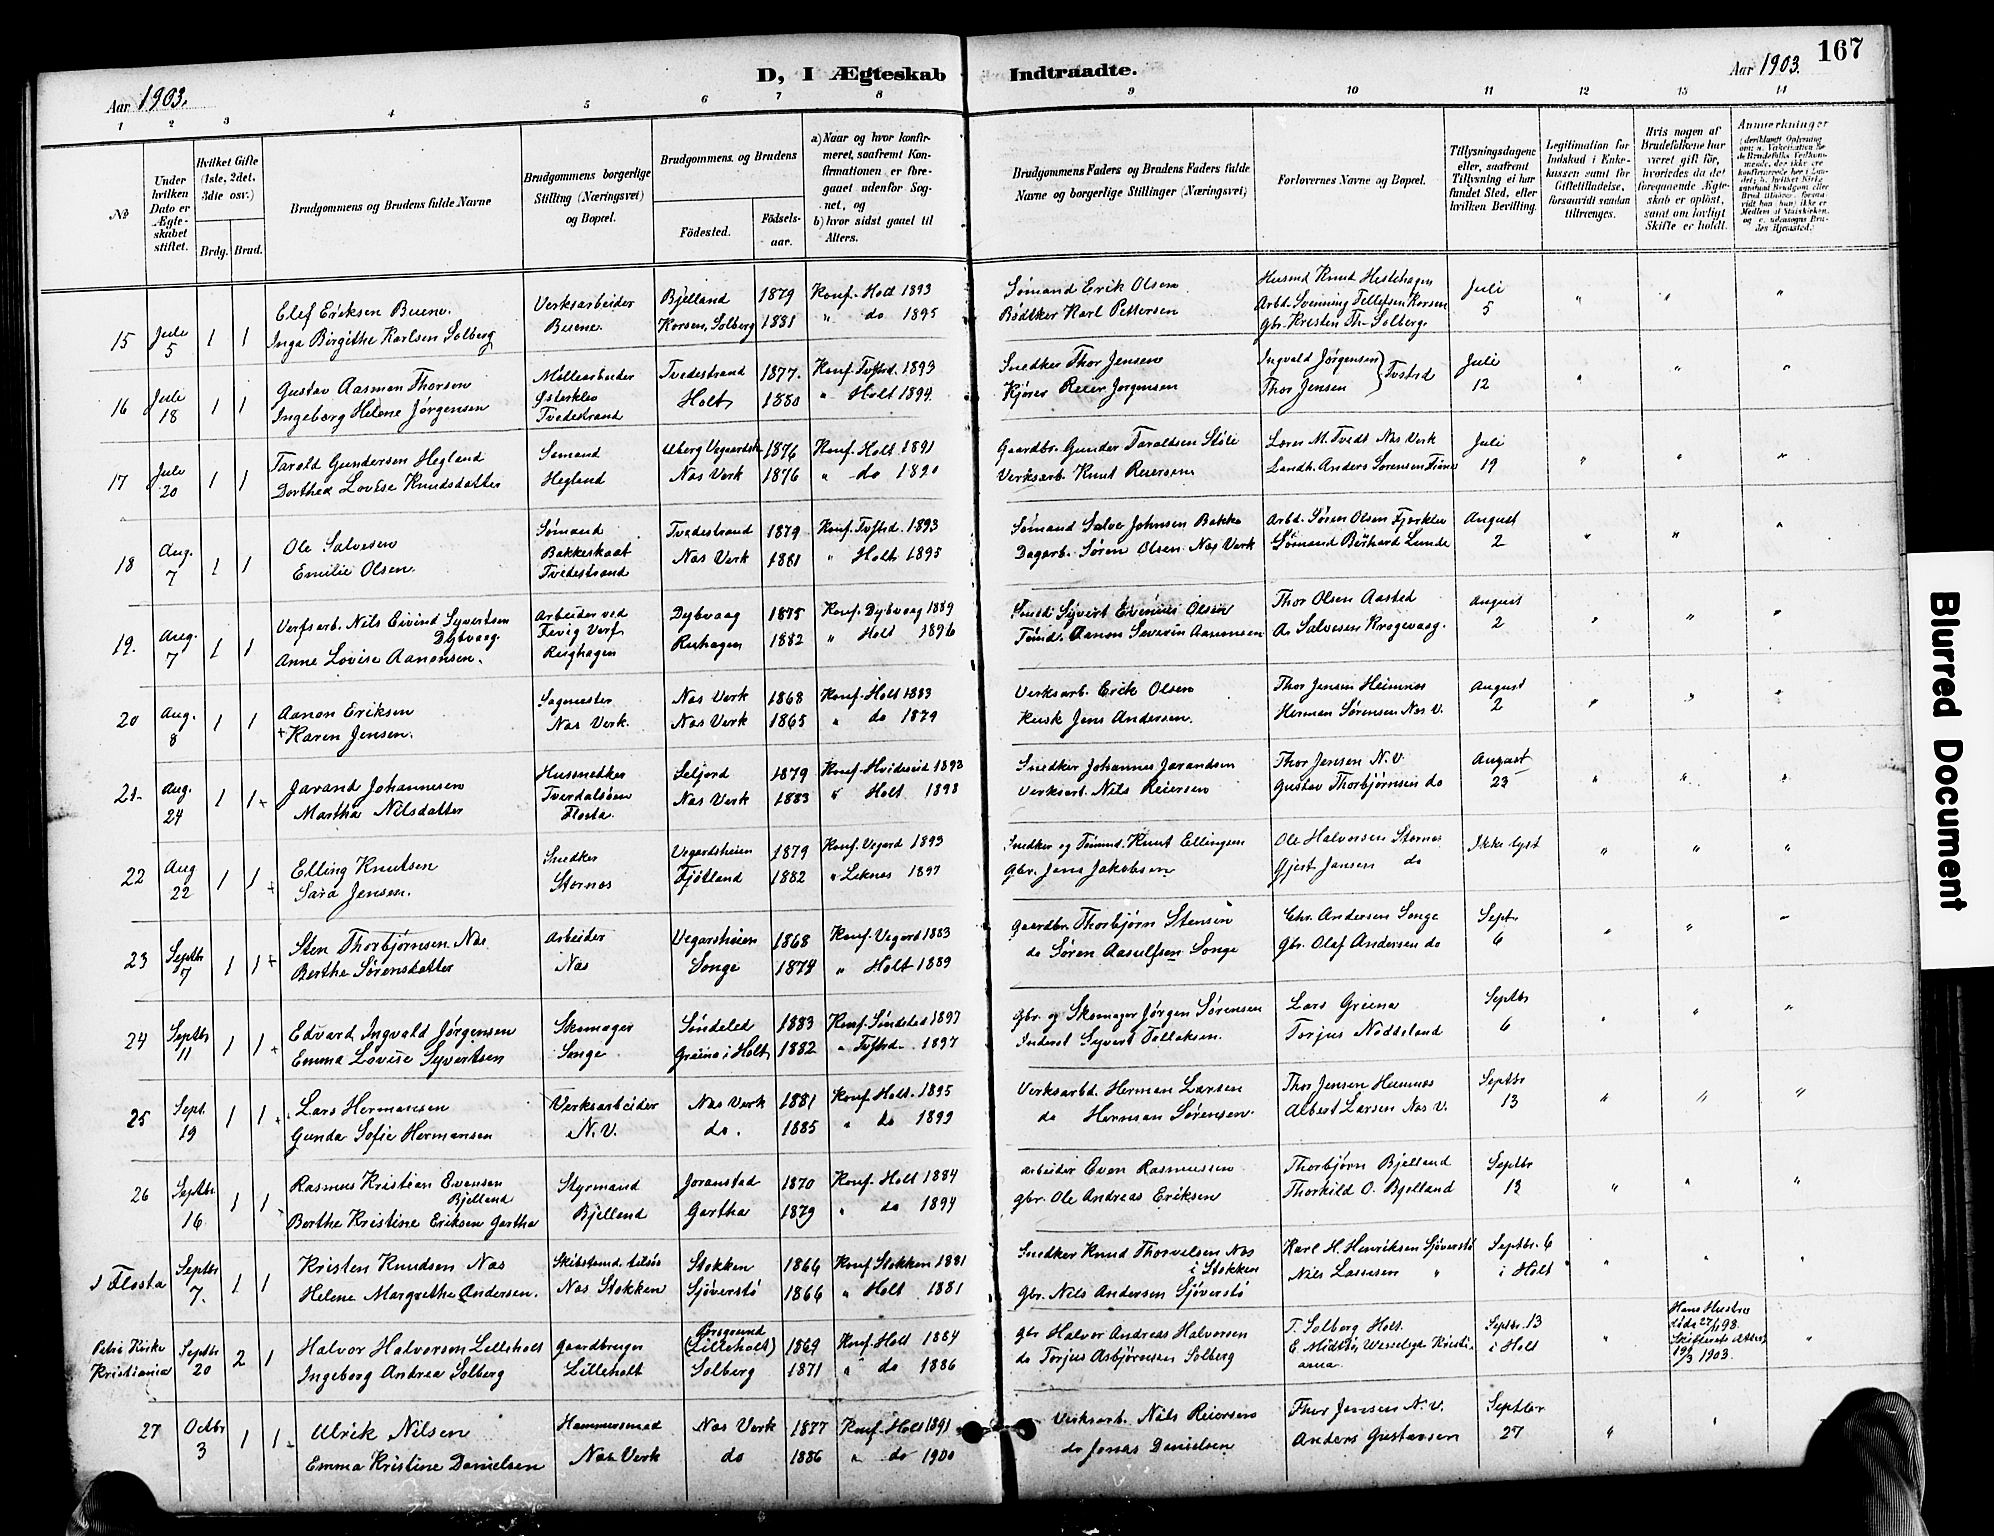 167
D, I Ægteskab Indtraadte.
Aar 1903.
Aar 1903.
1 2 3 4 5 6 7 8 9 10 11 12 13 14
No
Under hvilken Dato er Ægteskabet stiftet.
Hvilket Gifte (1ste, 2det, 3die osv.)
Brdg. Brud.
Brudgommens og Brudens fulde Navne
Brudgommens borgerlige Stilling (Næringsvei) og Bopæl.
Brudgommens og Brudens
Fødested.
Fødselsaar.
a) Naar og hvor konfirmeret, saafremt Konfirmationen er foregaaet udenfor Sognet, og
b) hvor sidst gaaet til Alters.
Brudgommens Faders og Brudens Faders fulde Navne og borgerlige Stillinger (Næringsvei)
Forlovernes Navne og Bopæl.
Tillysningsdagene eller, saafremt Tillysning ei har fundet Sted, efter hvilken Bevilling.
Legitimation for Indskud i Enkekassen samt for Giftetilladelse, forsaavidt saadan tiltrænges.
Hvis nogen af Brudefolkene har været gift før, hvorledes da det foregaaende Ægteskab er opløst, samt om lovligt Skifte er holdt.
Anmerkninger
15 Juli 5 1 1 Olef Eriksen Buene. Verksarbeider Bjelland 1879 Konf. Holt 1893 Sømand Erik Olsen Husmd Knud Hestehagen Juli 5 " " "
Inga Birgithe Karlsen Solberg Buene. Korsen, Solberg 1881 " do 1895 Bødtker Karl Pettersen Arbd. Svenning Tellefsen Korsen
gbr. Kristen Th. Solberg
16 Juli 18 1 1 Gustav Aasmon Thorsen Møllearbeider Tvedestrand 1877. Konf. Tvstrd. 1893 Snedker Thor Jensen Ingvald Jørgensen } Tvstrd Juli 12 " " "
Ingeborg Helene Jørgensen Østerkleo Tvedestrand Holt 1880 " Holt 1894. Kjører Reier Jørgensen Thor Jensen
17 Juli 20 1 1 Tarald Gundersen Hegland Sømand Uberg Vegaardsh. 1876 Konf. Holt 1891 Gaardbr. Gunder Taraldsen Støle Lærer M. Tvedt Nas Verk Juli 19 " " "
Dorthea Lovise Knudsdatter Hegland Nas Verk 1876 " do 1890 Verksarb. Knut Reiersen Landh. Anders Sørensen
18 Aug. 7 1 1 Ole Salvesen Sømand Tvedestrand 1879 Konf. Tvstrd. 1893 Sømand Salve Johnsen Bakke Arbd. Søren Olsen Fjærkleo August 2 " " "
Emilie Olsen. Bakkeskaat Tvedestrand Nas Verk 1881 " Holt 1895 Dagarb. Søren Olsen Nas Verk Sømand Berhard Lunde
19. Aug. 7 1 1 Verfsarb. Nils Eivind Syvertsen Dybvaag. Arbeider ved Fevig Verf Dybvaag 1875 Konf. Dybvaag 1889 Syvert Evenius Olsen Thor Olsen Aasted August 2 " " "
Anne Lovise Aanonsen. Rughagen Rughagen 1882 " Holt 1896 Tømd. Aanon Severin Aanonsen A. Salvesen Krogevaag.
20 Aug. 8 1 1 Aanon Eriksen Sagmester Nas Verk 1868 Konf. Holt 1883 Verksarb. Erik Olsen Thor Jensen Heimnes August 2 " " "
+ Karen Jensen. Nas Verk. Nas Verk 1865 " do 1879 Kusk Jens Andersen. Herman Sørensen Nas V.
21. Aug. 24 1 1 + Javand Johannesen Hussnedker Seljord 1879 Konf. Hvideseid 1893 Snedker Johannes Javandsen Thor Jensen N.V. August 23 " " "
Martha Nilsdatter Tverdalsøen Flosta. Nas Verk 1883 " Holt 1898 Verksarb. Nils Reiersen Gustav Thorbjørnsen do
22 Aug 22 1 1 + Elling Knutsen Snedker Vegardsheien 1879 Konf. Vegard 1893 Snedker og Tømmd. Knut Ellingsen Ole Halvorsen Stornes Ikke lyst " " "
Sara Jensen. Stornes Fjøtland 1882 " Liknes 1897 Gbr. Jens Jakobsen Gjest Jansen do
23 Septbr 7 1 1 + Sten Thorbjørnsen Nas. Arbeider Vegarsheien 1868 Konf. Vegard 1883 Gaardbr. Thorbjørn Stensen Chr. Andersen Songe Sept. 6 " " "
Berthe Sørensdatter Nas Songe 1874 " Holt 1889 do Søren Aasulfsen Songe Gbr. Olaf Andersen do
24 Septbr 11 1 1 + Edvard Ingvald Jørgensen Skomager Søndeled 1883 Konf. Søndeled 1897 Gbr. og Skomager Jørgen Sørensen Lars Greiena Septbr 6 " " "
Emma Lovise Syvertsen Songe. Greina i Holt 1882 " Tvstrd. 1897 Inderst Syvert Tellaksen. Torjus Nøddeland
25 Sept. 19 1 1 + Lars Hermansen Verksarbeider Nas Verk 1881 Konf. Holt. 1895 Verksarbd. Herman Larsen Thor Jensen Heimnes Septbr 13 " " "
Gunda Sofie Hermansen N.V. do. 1885 " do 1899 do Herman Sørensen. Albert Larsen Nas V.
26 Septbr 16 1 1 Rasmus Kristian Evensen Bjelland Styrmand Joranstad 1870 Konf. Holt 1884 Arbeider Even Rasmussen Thorbjørn Bjelland Septbr 13 " " "
Berthe Kristine Eriksen Gartha Bjelland Gartha 1879 " do 1894 gbr. Ole Andreas Eriksen Thorkild O. Bjelland
I Flosta Septbr 7. 1 1 Kristen Knudsen Nas Skibstømd. tilsøs Stokken 1864 Konf. Stokken 1881 Snedker Knud Thorvelsen Nas i Stokken Karl H. Henriksen Sjøverstø Septbr. 6 i Holt " " "
Helene Margrethe Andersen. Nas Stokken Sjøverstø 1866 " Holt 1881 Gbr. Nils Andersen Sjøverstø Nils Larsen "
Petri Kirke Kristiania Septbr 20 2 1 Halvor Halvorsen Lilleholt Gaardbruger (Lilleholt) 1869 Konf. Holt 1884 gbr Halvor Andreas Halvorsen T. Solberg Holt. Septr. 13 i Holt " Hans Hustru døde 27/4 98. 19/3 1903. "
Ingeborg Andrea Solberg Lilleholt Solberg 1871 " do 1886 do Torjus Asbjørnsen Solberg
27 Octbr 3 1 1 Ulrik Nilsen Hammersmed Nas Verk 1877 Konf. Holt 1891 Verksarb. Nils Reiersen Thor Jensen N.V. Septbr 27 " "
Emma Kristine Danielsen Nas Verk do 1886 " do 1900 do Jonas Danielsen Anders Gustavsen
Blurred Document